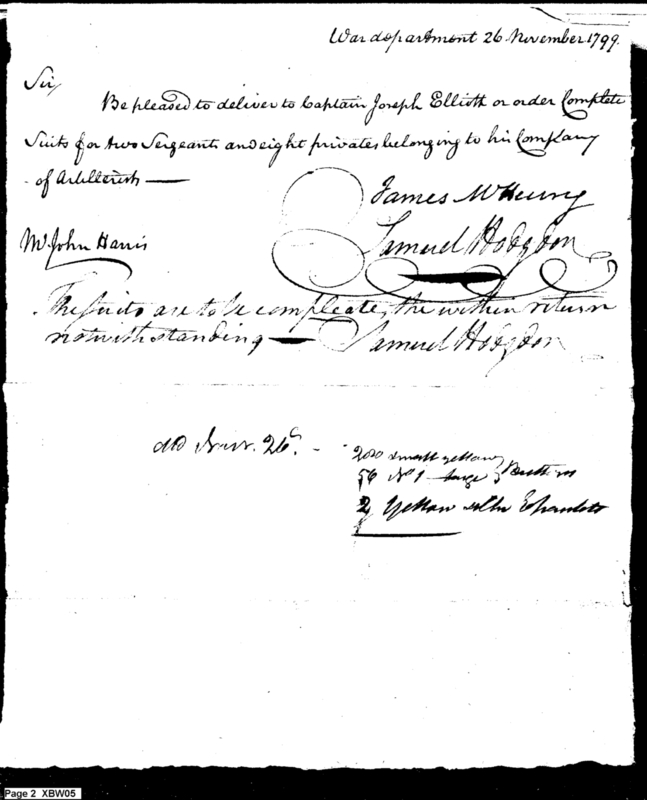 War department 26 November 1799.
Sir,
Be pleased to deliver to Captain Joseph Elliott or order Complete
Suits for two Sergeants and eight privates belonging to his Company
of Artillerists —
James McHenry
Samuel Hodgdon
Mr John Harris
The suits are to be compleate, the within return
notwithstanding —
Samuel Hodgdon
dd Nov. 26
200 small yellow
56 No 1 large Buttons
2 Yellow Epaulets
Page 2 XBW05